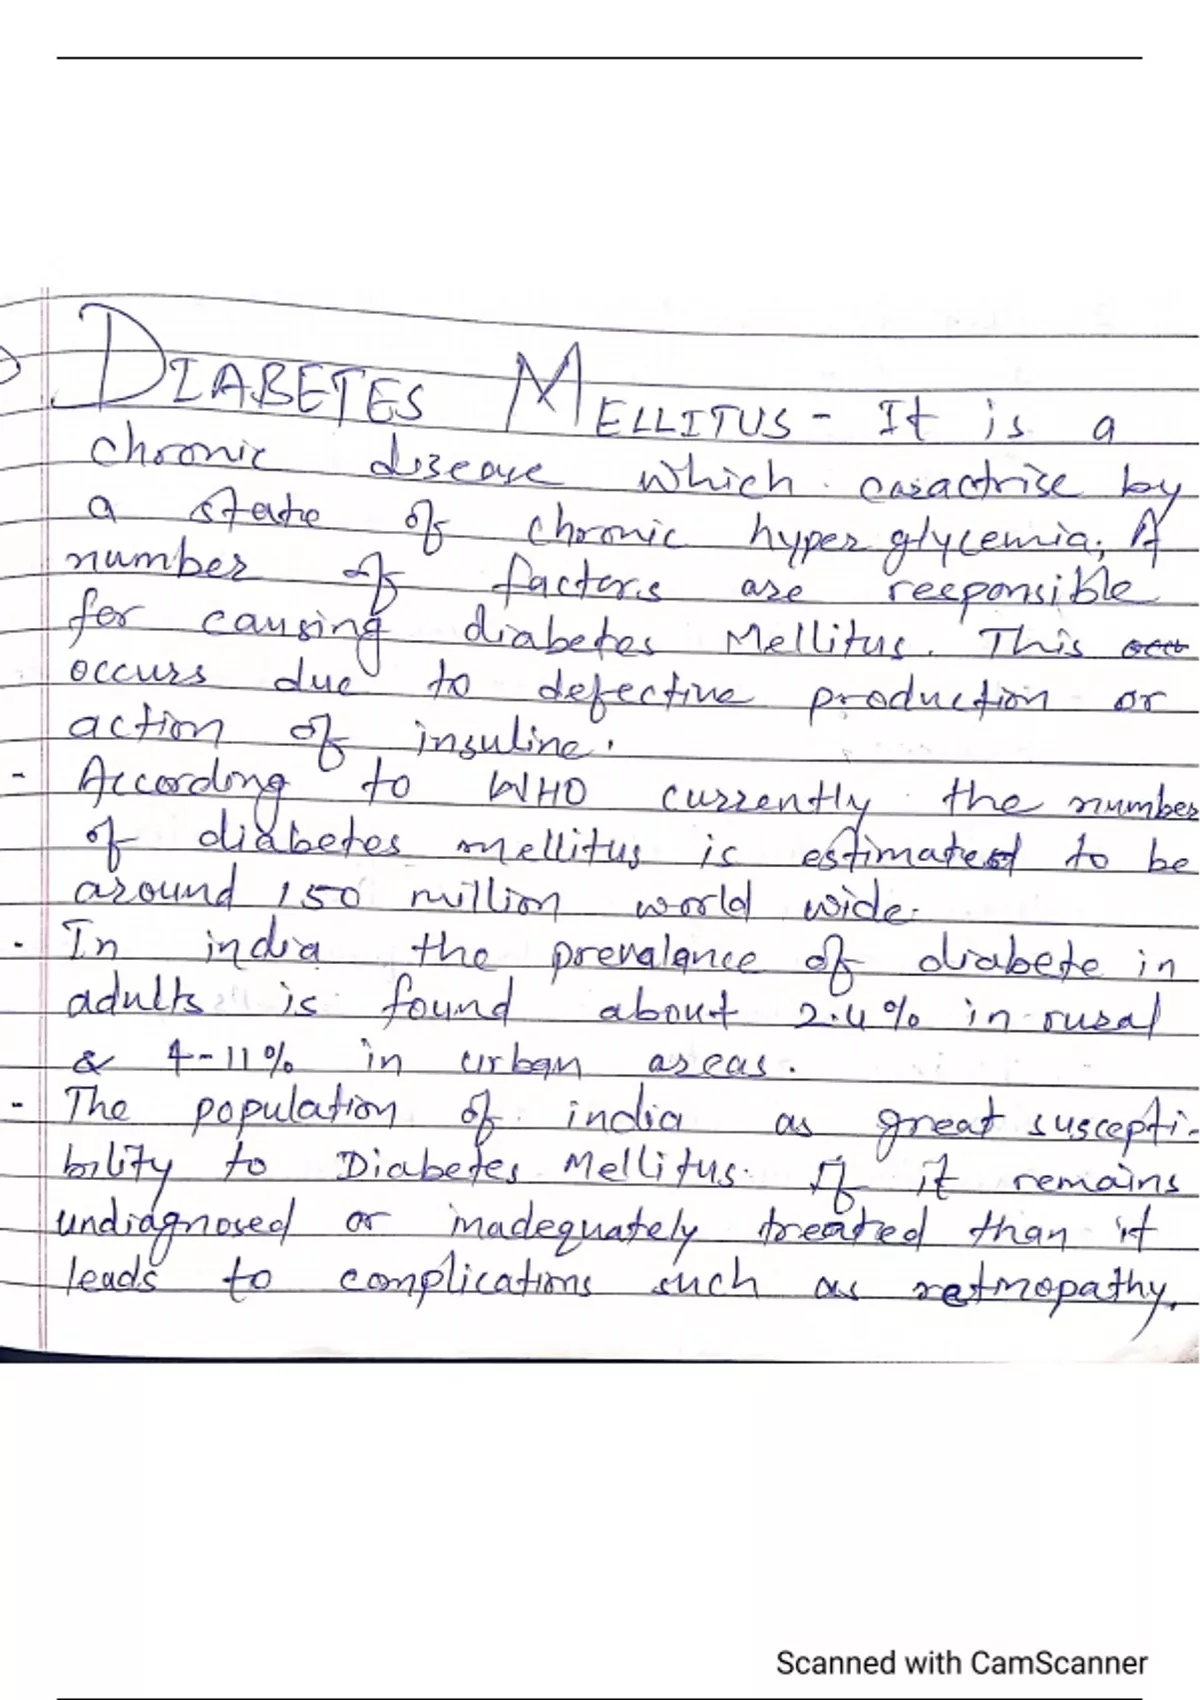 DIABETES MELLITUS - It is a
chronic disease which casactrise by
a state of chronic hyper glycemia. A
number of factors are reeponsible
for causing diabetes Mellitus. This
occurs due to defective production or
action of insuline.
- According to WHO currently the number
of diabetes mellitus is estimated to be
around 150 million world wide.
- In india the prevalance of diabete in
adults is found about 2.4% in rural
& 4-11% in urban areas.
- The population of india as great suscepti-
bility to Diabetes Mellitus. If it remains
undiagnosed or inadequately treated than it
leads to complications such as retinopathy,
Scanned with CamScanner